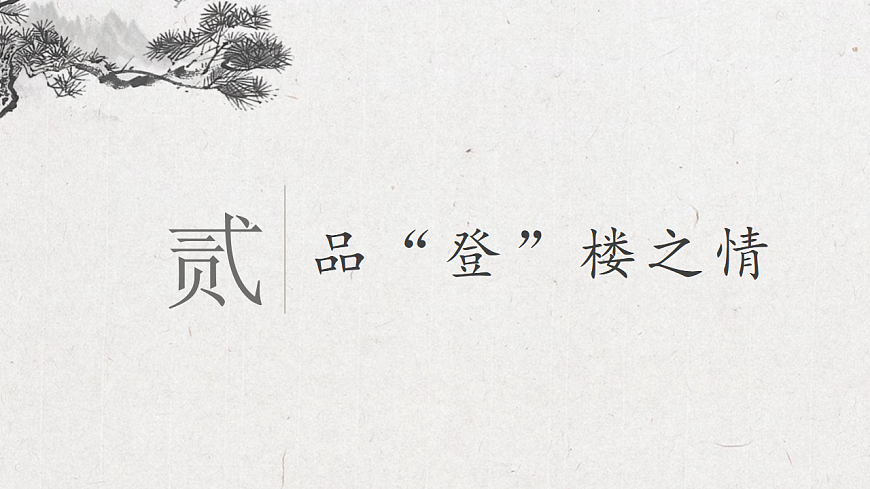 贰
品“登”楼之情